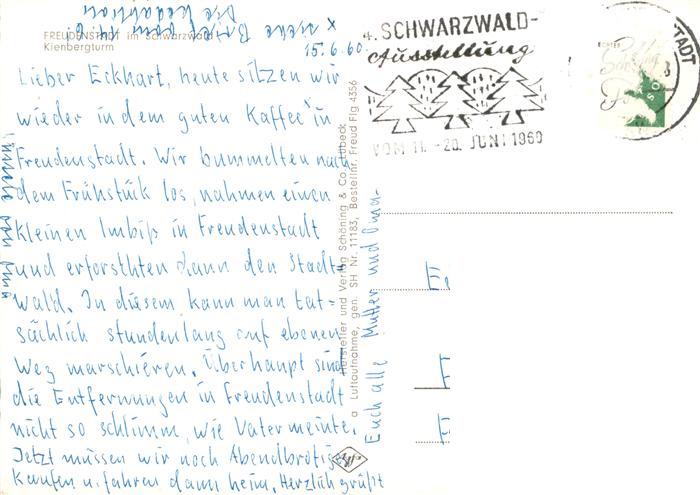 FREUDENSTADT im Schwarzwald
Kienbergturm
x siehe Brief vom
15.6.60
Lieber Eckhart, heute sitzen wir
wieder in dem guten Kaffee x in
Freudenstadt. Wir bummelten nach
dem Frühstück los, nahmen einen
kleinen Imbiß in Freudenstadt
und erforsthten dann den Stadt-
wald. In diesem kann man tat-
sächlich stundenlang auf ebenen
Weg marschieren. Überhaupt sind
die Entfernungen in Freudenstadt
nicht so schlimm, wie Vater meinte.
Jetzt müssen wir noch Abendbrotiges
kaufen u. fahren dann heim. Herzlich grüßt
Euch alle Mutter und Oma
4. SCHWARZWALD-
Ausstellung
VOM 11. - 20. JUNI 1960
STADT
Hersteller und Verlag Schöning & Co., Lübeck
a Luftaufnahme, gen. SH Nr. 11183, Bestellnr. Freud Flg 4356